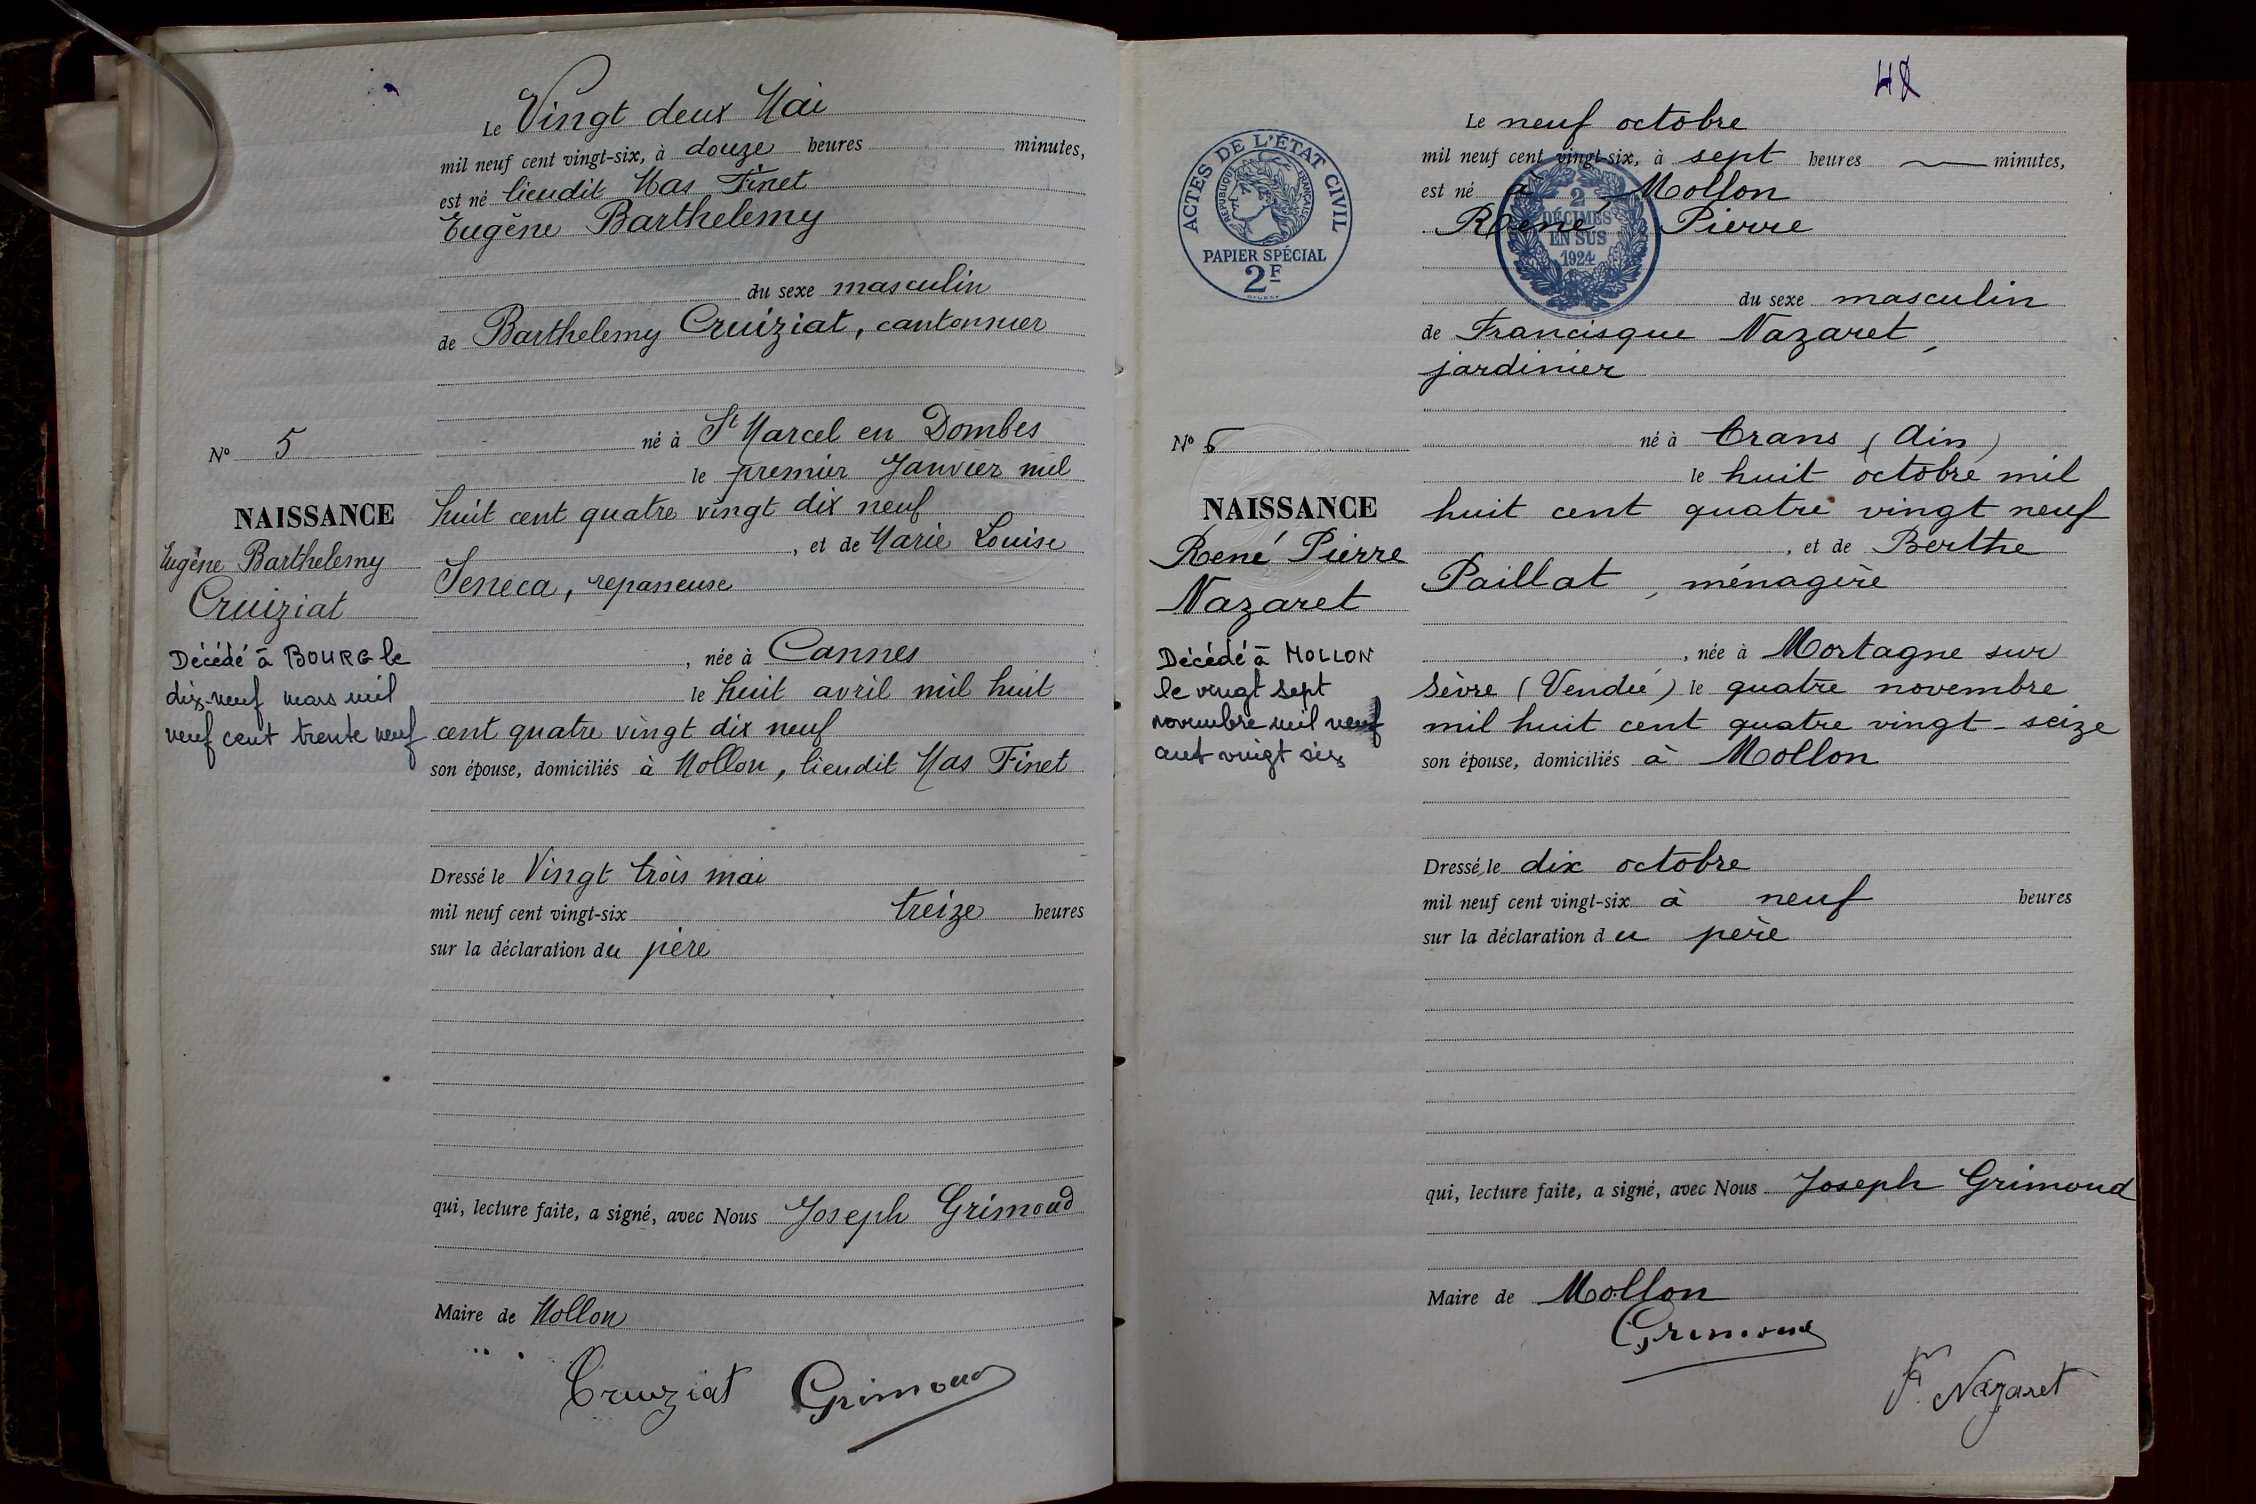 Le Vingt deux Mai
mil neuf cent vingt-six, à douze heures minutes,
est né lieudit Mas Finet
Eugène Barthelemy
du sexe masculin
de Barthelemy Cruiziat, cantonnier
né à St Marcel en Dombes
le premier Janvier mil
huit cent quatre vingt dix neuf
, et de Marie Louise
Seneca, repasseuse
, née à Cannes
le huit avril mil huit
cent quatre vingt dix neuf
son épouse, domiciliés à Mollon, lieudit Mas Finet
Dressé le Vingt trois mai
mil neuf cent vingt-six treize heures
sur la déclaration du père
qui, lecture faite, a signé, avec Nous Joseph Grimoud
Maire de Mollon
Cruiziat Grimoud
No 5
NAISSANCE
Eugène Barthelemy
Cruiziat
Décédé à BOURG le
dix-neuf mars mil
neuf cent trente neuf
ACTES DE L'ÉTAT CIVIL
RÉPUBLIQUE FRANÇAISE
PAPIER SPÉCIAL
2F
No 6
NAISSANCE
René Pierre
Nazaret
Décédé à MOLLON
le vingt sept
novembre mil neuf
cent vingt six
Le neuf octobre
mil neuf cent vingt-six, à sept heures minutes,
est né à Mollon
René Pierre
2
DÉCIMES
EN SUS
1924
du sexe masculin
de Francisque Nazaret,
jardinier
né à Crans (Ain)
le huit octobre mil
huit cent quatre vingt neuf
, et de Berthe
Paillat, ménagère
, née à Mortagne sur
Sèvre (Vendée) le quatre novembre
mil huit cent quatre vingt-seize
son épouse, domiciliés à Mollon
Dressé le dix octobre
mil neuf cent vingt-six à neuf heures
sur la déclaration du père
qui, lecture faite, a signé, avec Nous Joseph Grimoud
Maire de Mollon
Grimoud
F. Nazaret